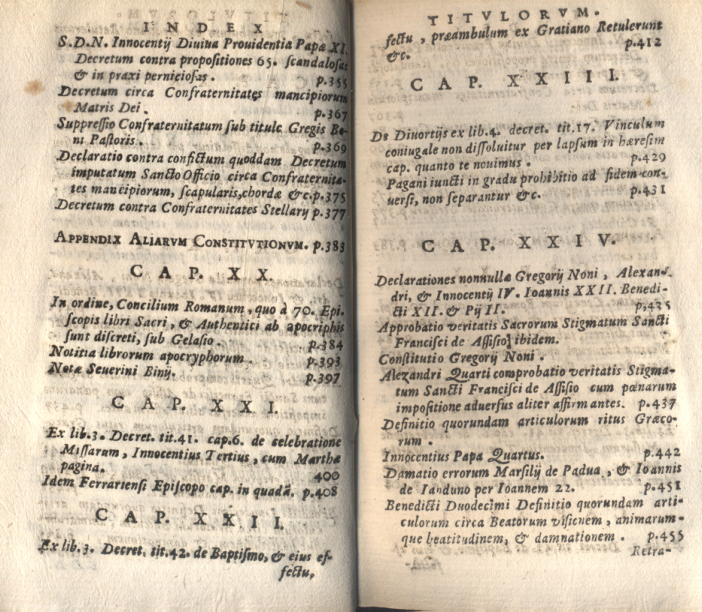 INDEX
S.D.N. Innocentij Diuiua Prouidentia Papæ XI.
Decretum contra propositiones 65. scandalosas
& in praxi perniciosas. p.355
Decretum circa Confraternitates mancipiorum
Matris Dei. p.367
Suppressio Confraternitatum sub titule Gregis Bo-
ni Pastoris. p.369
Declaratio contra confictum quoddam Decretum
imputatum Sancto Officio circa Confraternita-
tes mancipiorum, scapularis, chordæ &c. p.375
Decretum contra Confraternitates Stellary p.377
APPENDIX ALIARVM CONSTITVTIONVM. p.383
CAP. XX.
In ordine, Concilium Romanum, quo à 70. Epi-
scopis libri Sacri, & Authentici ab apocriphis
sunt discreti, sub Gelasio. p.384
Notitia librorum apocryphorum. p.393
Notæ Seuerini Binij. p.397
CAP. XXI.
Ex lib.3. Decret. tit.41. cap.6. de celebratione
Missarum, Innocentius Tertius, cum Marthæ
pagina. 400
Idem Ferrariensi Episcopo cap. in quadã. p.408
CAP. XXII.
Ex lib.3. Decret. tit.42. de Baptismo, & eius ef-
fectu,
TITVLORVM.
fectu, præambulum ex Gratiano Retulerunt
&c. p.412
CAP. XXIII.
De Diuortijs ex lib.4. decret. tit.17. Vinculum
coniugale non dissoluitur per lapsum in hæresim
cap. quanto te nouimus. p.429
Pagani iuncti in gradu prohibitio ad fidem con-
uersi, non separantur &c. p.431
CAP. XXIV.
Declarationes nonnullæ Gregorij Noni, Alexan-
dri, & Innocentij IV. Ioannis XXII. Benedi-
cti XII. & Pij II. p.435
Approbatio veritatis Sacrorum Stigmatum Sancti
Francisci de Assisio ibidem.
Constitutio Gregorij Noni.
Alexandri Quarti comprobatio veritatis Stigma-
tum Sancti Francisci de Assisio cum pœnarum
impositione aduersus aliter affirmantes. p.437
Definitio quorundam articulorum ritus Græco-
rum.
Innocentius Papa Quartus. p.442
Damatio errorum Marsilij de Padua, & Ioannis
de Ianduno per Ioannem 22. p.451
Benedicti Duodecimi Definitio quorundam arti-
culorum circa Beatorum visionem, animarum-
que beatitudinem, & damnationem. p.455
Retra-